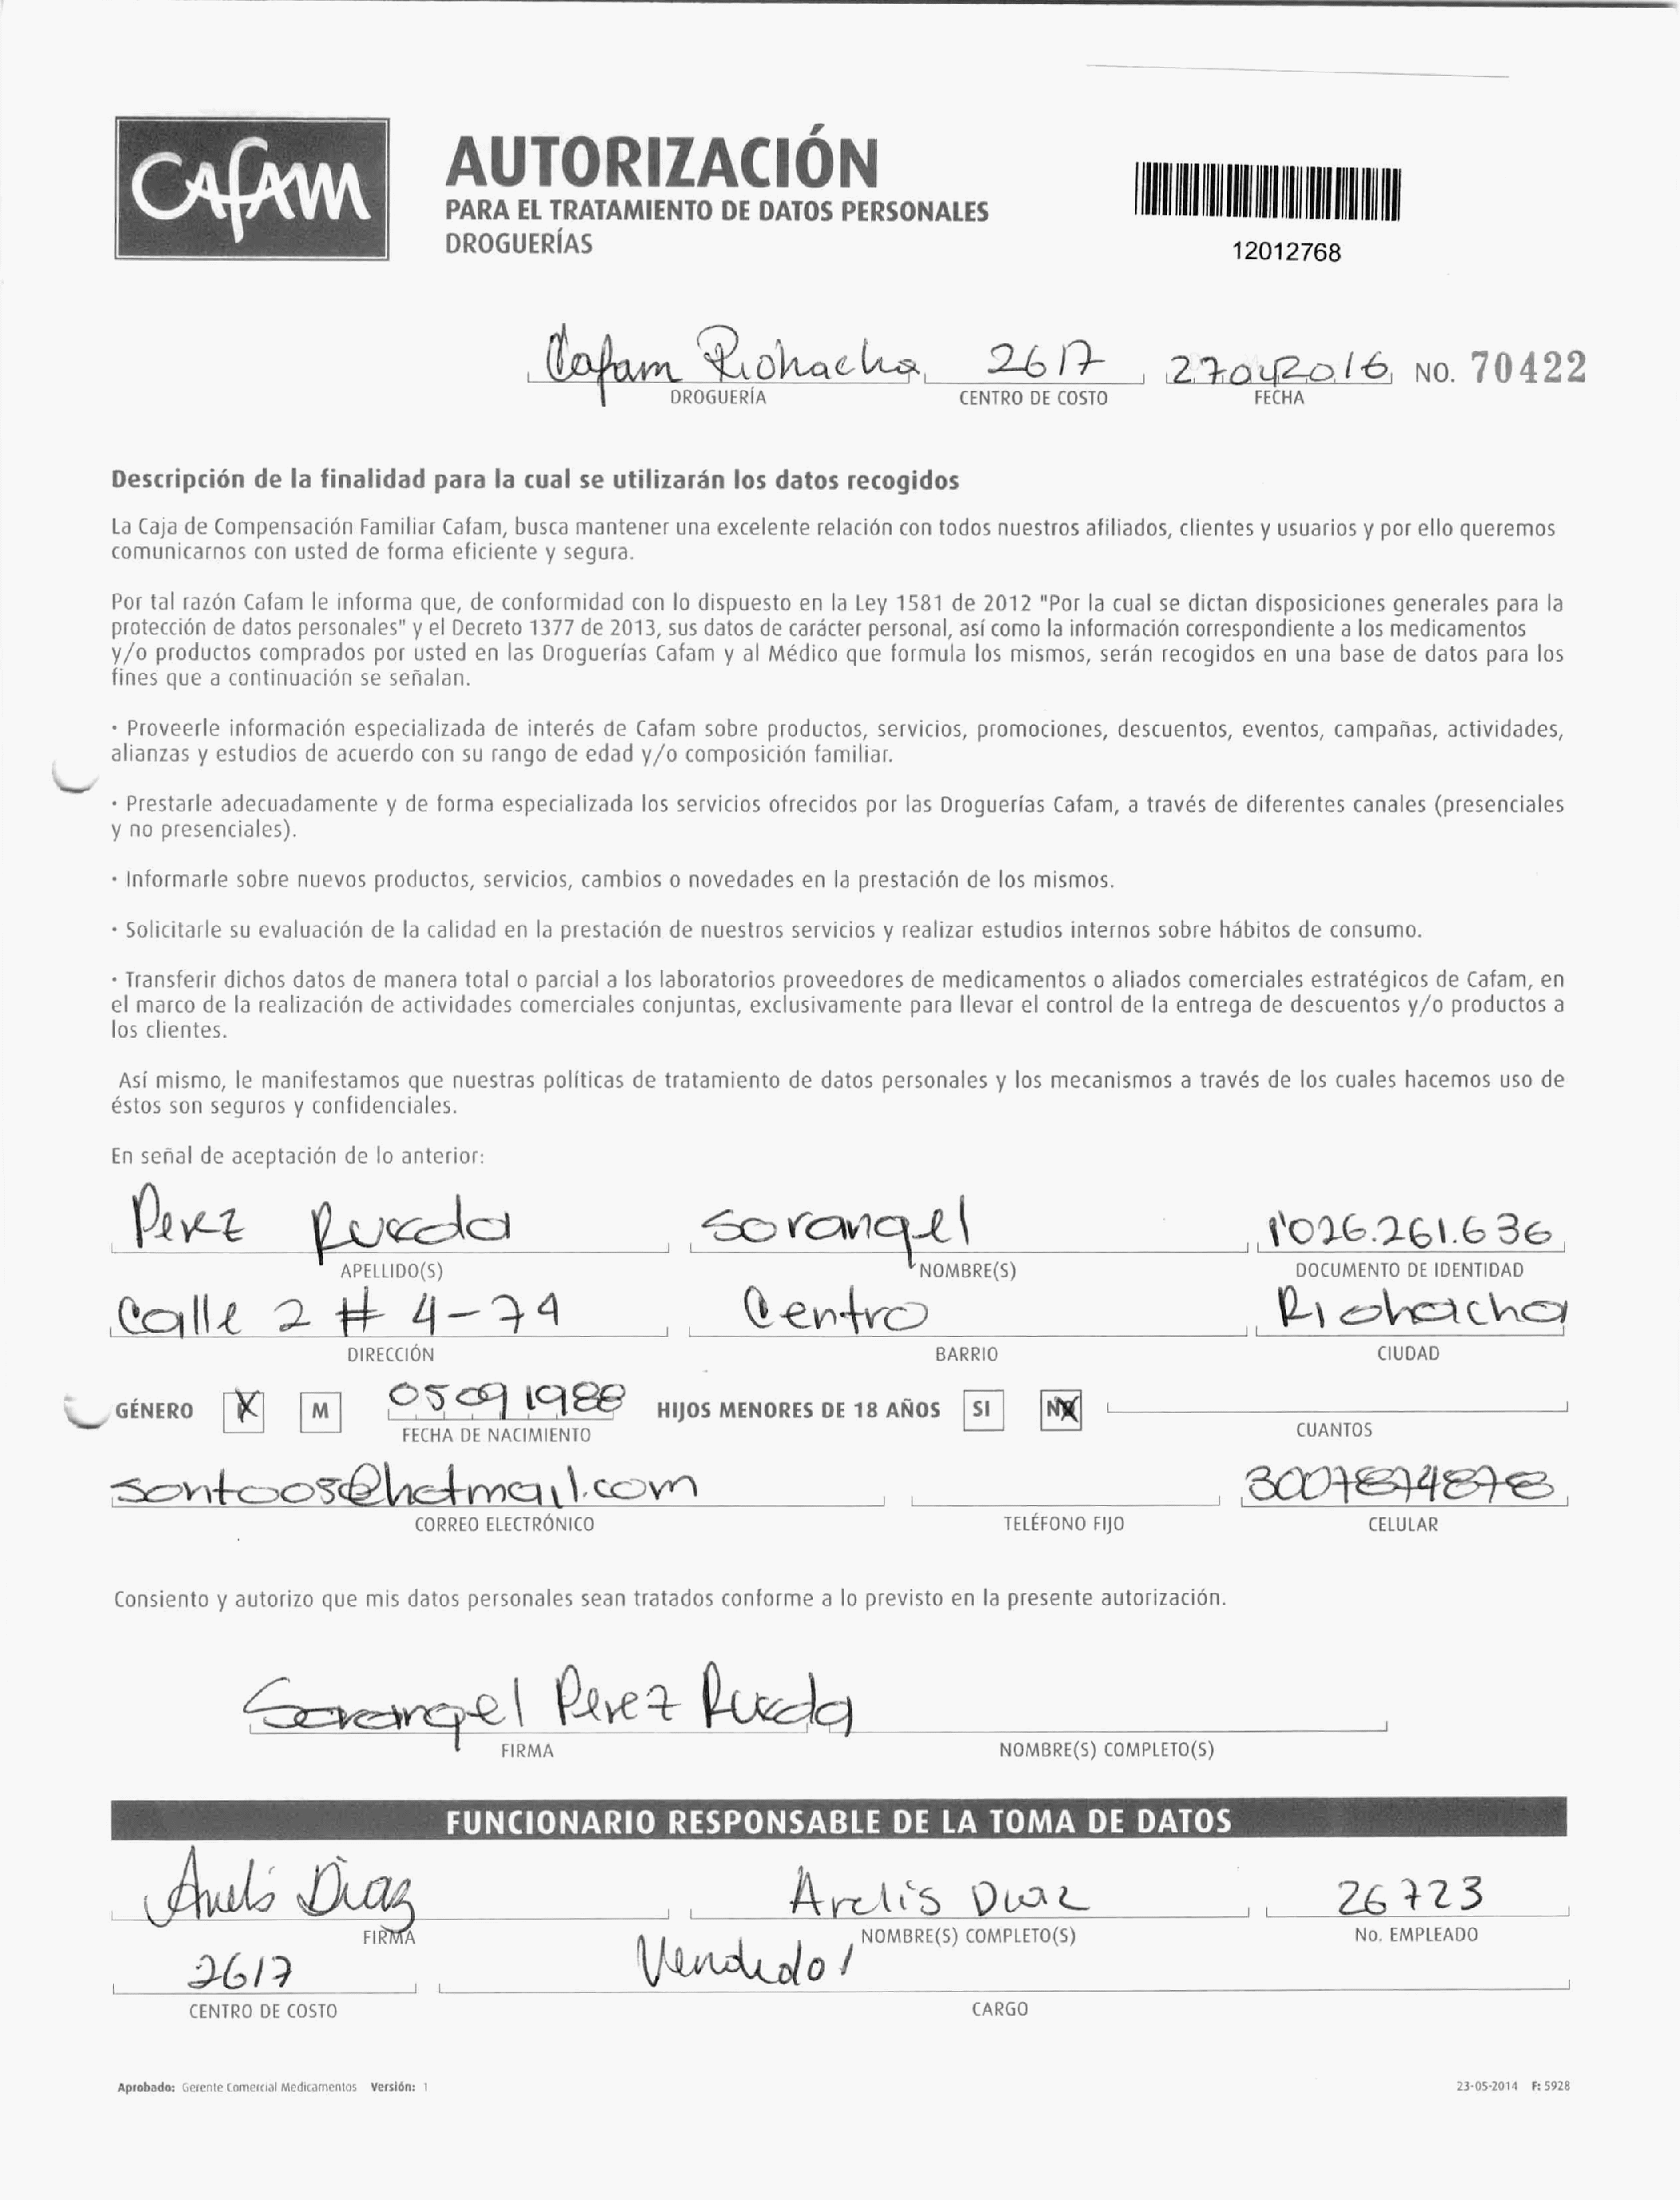 CAfAM
AUTORIZACIÓN
PARA EL TRATAMIENTO DE DATOS PERSONALES
DROGUERÍAS
12012768
Cafam Riohacha 2617 27042016 NO. 70422
DROGUERÍA CENTRO DE COSTO FECHA
Descripción de la finalidad para la cual se utilizarán los datos recogidos
La Caja de Compensación Familiar Cafam, busca mantener una excelente relación con todos nuestros afiliados, clientes y usuarios y por ello queremos
comunicarnos con usted de forma eficiente y segura.
Por tal razón Cafam le informa que, de conformidad con lo dispuesto en la Ley 1581 de 2012 "Por la cual se dictan disposiciones generales para la
protección de datos personales" y el Decreto 1377 de 2013, sus datos de carácter personal, así como la información correspondiente a los medicamentos
y/o productos comprados por usted en las Droguerías Cafam y al Médico que formula los mismos, serán recogidos en una base de datos para los
fines que a continuación se señalan.
· Proveerle información especializada de interés de Cafam sobre productos, servicios, promociones, descuentos, eventos, campañas, actividades,
alianzas y estudios de acuerdo con su rango de edad y/o composición familiar.
· Prestarle adecuadamente y de forma especializada los servicios ofrecidos por las Droguerías Cafam, a través de diferentes canales (presenciales
y no presenciales).
· Informarle sobre nuevos productos, servicios, cambios o novedades en la prestación de los mismos.
· Solicitarle su evaluación de la calidad en la prestación de nuestros servicios y realizar estudios internos sobre hábitos de consumo.
· Transferir dichos datos de manera total o parcial a los laboratorios proveedores de medicamentos o aliados comerciales estratégicos de Cafam, en
el marco de la realización de actividades comerciales conjuntas, exclusivamente para llevar el control de la entrega de descuentos y/o productos a
los clientes.
Así mismo, le manifestamos que nuestras políticas de tratamiento de datos personales y los mecanismos a través de los cuales hacemos uso de
éstos son seguros y confidenciales.
En señal de aceptación de lo anterior:
Perez Rueda Sorangel 1'026.261.636
APELLIDO(S) NOMBRE(S) DOCUMENTO DE IDENTIDAD
Calle 2 # 4-79 Centro Riohacha
DIRECCIÓN BARRIO CIUDAD
GÉNERO X M 05091988 HIJOS MENORES DE 18 AÑOS SI NX
FECHA DE NACIMIENTO CUANTOS
sontoos@hotmail.com 3007874878
CORREO ELECTRÓNICO TELÉFONO FIJO CELULAR
Consiento y autorizo que mis datos personales sean tratados conforme a lo previsto en la presente autorización.
Sorangel Perez Rueda
FIRMA NOMBRE(S) COMPLETO(S)
FUNCIONARIO RESPONSABLE DE LA TOMA DE DATOS
Arelis Diaz Arelis Diaz 26723
FIRMA NOMBRE(S) COMPLETO(S) No. EMPLEADO
2617 Vendedor
CENTRO DE COSTO CARGO
Aprobado: Gerente Comercial Medicamentos Versión: 1 23-05-2014 F: 5928